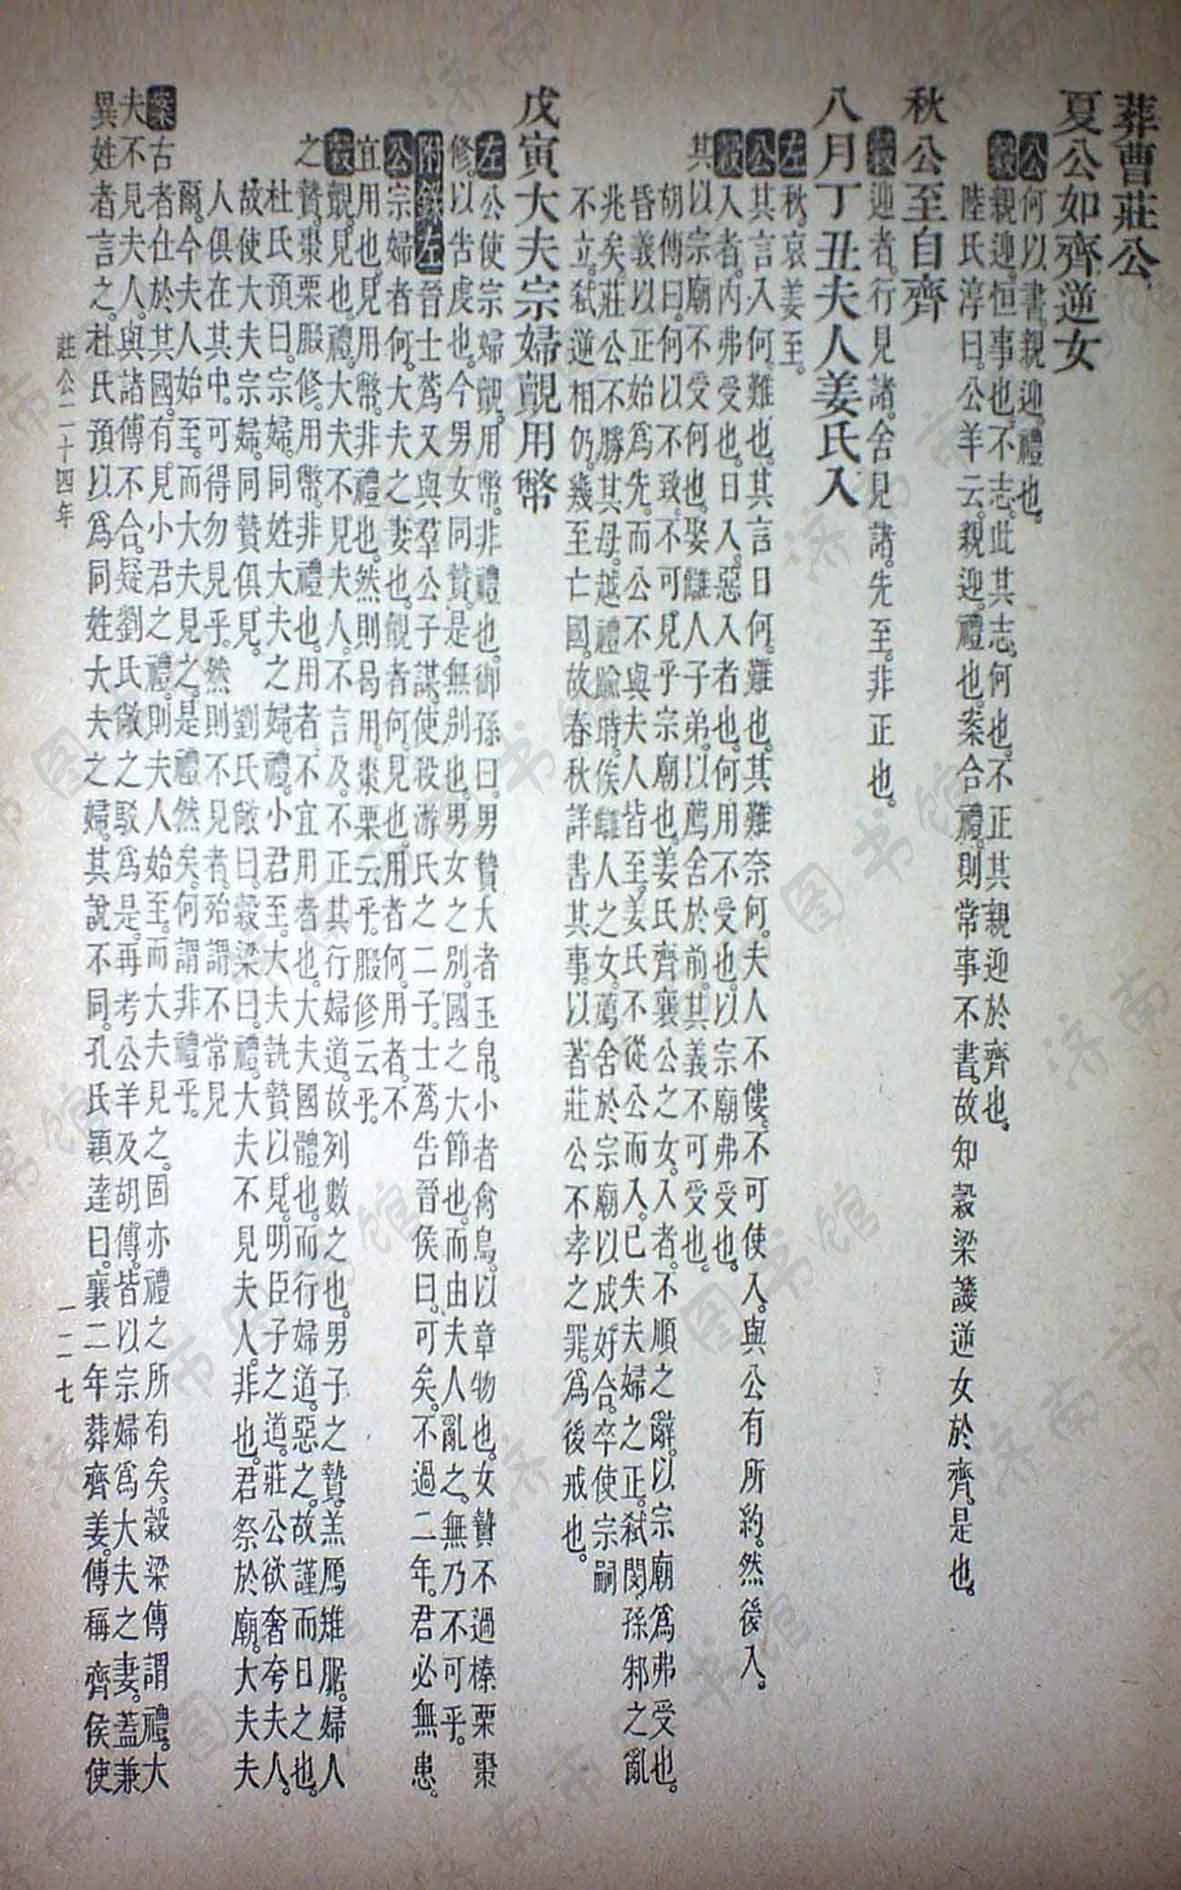 葬曹莊公
夏公如齊逆女
公何以書親迎禮也
穀親迎恒事也不志此其志何也不正其親迎於齊也
陸氏淳曰公羊云親迎禮也案合禮則常事不書故知穀梁譏逆女於齊是也
秋公至自齊
穀迎者行見諸舍見諸先至非正也
八月丁丑夫人姜氏入
左秋哀姜至
公其言入何難也其言日何難也其難奈何夫人不僂不可使入與公有所約然後入
穀入者內弗受也日入惡入者也何用不受也以宗廟弗受也
其以宗廟不受何也娶讎人子弟以薦舍於前其義不可受也
胡傳曰何以不致不可見乎宗廟也姜氏齊襄公之女入者不順之辭以宗廟爲弗受也
昏義以正始爲先而公不與夫人皆至姜氏不從公而入已失夫婦之正弒閔孫邾之亂
兆矣莊公不勝其母越禮踰時俟讎人之女薦舍於宗廟以成好合卒使宗嗣
不立弒逆相仍幾至亡國故春秋詳書其事以著莊公不孝之罪爲後戒也
戊寅大夫宗婦覿用幣
左公使宗婦覿用幣非禮也御孫曰男贄大者玉帛小者禽鳥以章物也女贄不過榛栗棗
修以告虔也今男女同贄是無別也男女之別國之大節也而由夫人亂之無乃不可乎
附錄左晉士蔿又與羣公子謀使殺游氏之二子士蔿告晉侯曰可矣不過二年君必無患
公宗婦者何大夫之妻也覿者何見也用者何用者不
宜用也見用幣非禮也然則曷用棗栗云乎腶修云乎
穀覿見也禮大夫不見夫人不言及不正其行婦道故列數之也男子之贄羔鴈雉腒婦人
之贄棗栗腶修用幣非禮也用者不宜用者也大夫國體也而行婦道惡之故謹而日之也
杜氏預曰宗婦同姓大夫之婦禮小君至大夫執贄以見明臣子之道莊公欲奢夸夫人
故使大夫宗婦同贄俱見 劉氏敞曰穀梁曰禮大夫不見夫人非也君祭於廟大夫夫
人俱在其中可得勿見乎然則不見者殆謂不常見
爾今夫人始至而大夫見之是禮然矣何謂非禮乎
案古者仕於其國有見小君之禮則夫人始至而大夫見之固亦禮之所有矣穀梁傳謂禮大
夫不見夫人與諸傳不合疑劉氏敞之駁爲是再考公羊及胡傳皆以宗婦爲大夫之妻蓋兼
異姓者言之杜氏預以爲同姓大夫之婦其說不同孔氏穎達曰襄二年葬齊姜傳稱齊侯使
莊公二十四年
一二七